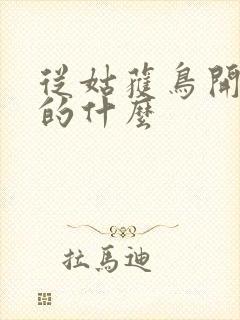 從姑獲鳥開
的什麼
拉馬迪